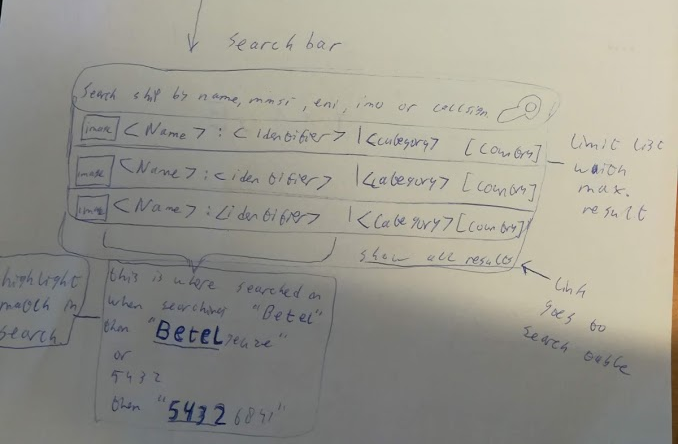 Search bar
Search ship by name, mmsi, eni, imo or callsign
image <Name> : <identifier> | <category> [country]
image <Name> : <identifier> | <category> [country]
image <Name> : <identifier> | <category> [country]
limit list
waith
max.
result
show all results
link
goes to
search table
highlight
match in
search
this is where searched on
when searching "Betel"
then "Betelgeuze"
or
5432
then "5432 6841"